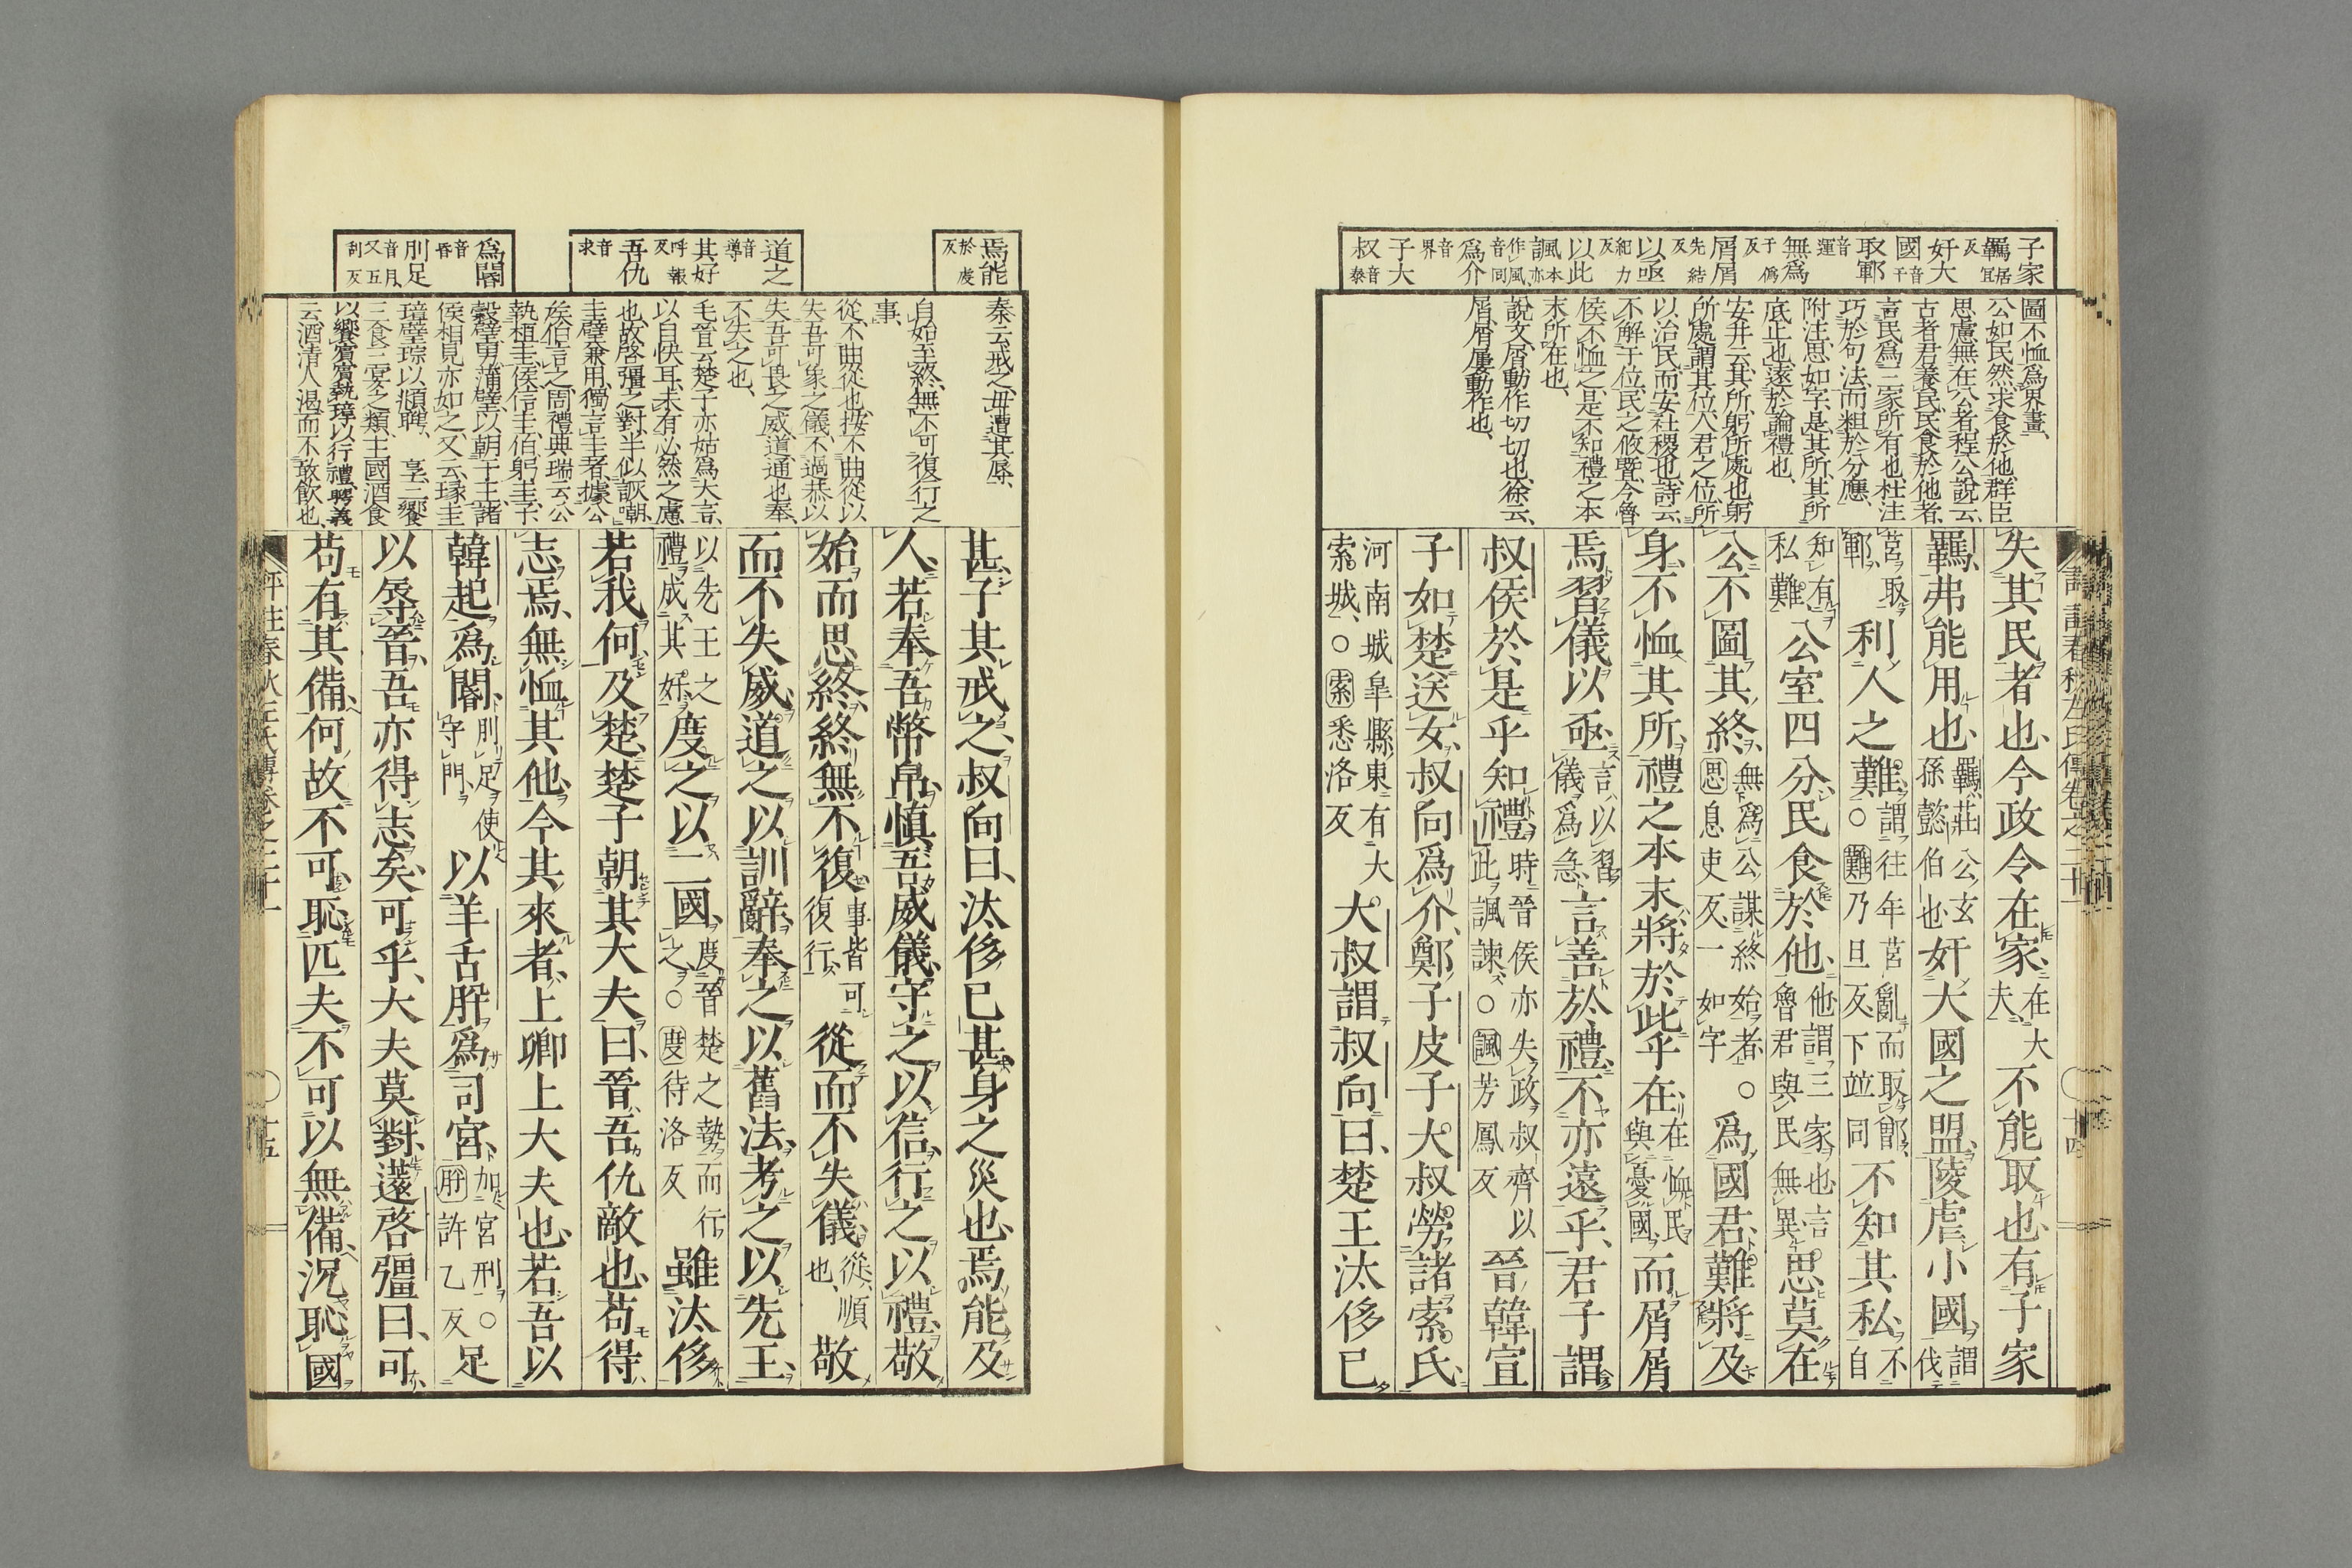 子家
羈居宜反
奸大
國音干
取鄆音運
無爲于僞反
屑屑先結反
以亟紀力反
以此
諷本亦作風音同
爲介音界
子大
叔音泰
圖不恤爲界畫、
公如民然、求食於他、群臣
思慮無在公者、程公說云、
古者君養民、民食於他者、
言民爲三家所有也、杜注
巧於句法、而粗於分應、
附注、思如字、是其所、其所
底止也、遠於論禮也、
安井云、其所、躬所處也、躬
所處、謂其位、人君之位、所
以治民、而安社稷也、詩云、
不解于位、民之攸墍、今魯
侯不恤之、是不知禮之本
末所在也、
說文、屑、動作切切也、徐云、
屑屑屢動作也、
失其民者也、今政令在家、在大夫不能取也、有子家
羈、弗能用也、羈、莊公玄孫懿伯也奸大國之盟、陵虐小國、謂伐
莒取鄆、利人之難、謂往年莒亂而取鄫、○難乃旦反下竝同不知其私、不自
知有私難公室四分、民食於他、他謂三家也言魯君與民無異思莫在
公、不圖其終、無爲公謀終始者○思息吏反、一如字爲國君、難將及
身、不恤其所、禮之本末、將於此乎在、在恤民與憂國而屑屑
焉習儀以亟、言以習儀爲急言善於禮、不亦遠乎、君子謂
叔侯於是乎知禮、時晉侯亦失政叔齊以此諷諫○諷芳鳳反晉韓宣
子如楚送女、叔向爲介、鄭子皮子大叔勞諸索氏、
河南城皐縣東有大索城、○索悉洛反大叔謂叔向曰、楚王汰侈已
焉能於虔反
道之音導
其好呼報反
吾仇音求
爲閽音昏
刖足音月、又五刮反
秦云、戒之、毋遭其辱、
自始至終、無不可復行之
事、
從、不曲從也、按不曲從以
失吾可象之儀、不過恭以
失吾可畏之威、道、通也、奉、
不失之也、
毛晉云、楚子亦姑爲大言、
以自快耳、未有必然之慮
也、故啓彊之對、半似詼嘲、
圭璧兼用、獨言圭者、據公
侯伯言之、周禮典瑞云、公
執桓圭、侯信圭、伯躬圭、子
穀璧、男蒲璧、以朝于王、諸
侯相見亦如之、又云、瑑圭
璋璧琮、以頫聘、 享、三饗
三食三宴之類、主國酒食
以饗賓、賓執璋以行禮、聘義
云、酒清人渴、而不敢飲也、
甚、子其戒之、叔向曰、汰侈已甚、身之災也、焉能及
人、若奉吾幣帛、愼吾威儀、守之以信、行之以禮、敬
始而思終、終無不復、事皆可復行從而不失儀、從、順也、敬
而不失威、道之以訓辭、奉之以舊法、考之以先王、
以先王之禮成其好度之以二國、度晉楚之勢而行之○度待洛反雖汰侈
若我何、及楚、楚子朝其大夫曰、晉、吾仇敵也、苟得
志焉、無恤其他、今其來者、上卿上大夫也、若吾以
韓起爲閽、刖足使守門以羊舌肸爲司宮、加宮刑○肸許乙反足
以辱晉、吾亦得志矣、可乎、大夫莫對、薳啓彊曰、可、
苟有其備、何故不可、恥匹夫、不可以無備、況恥國